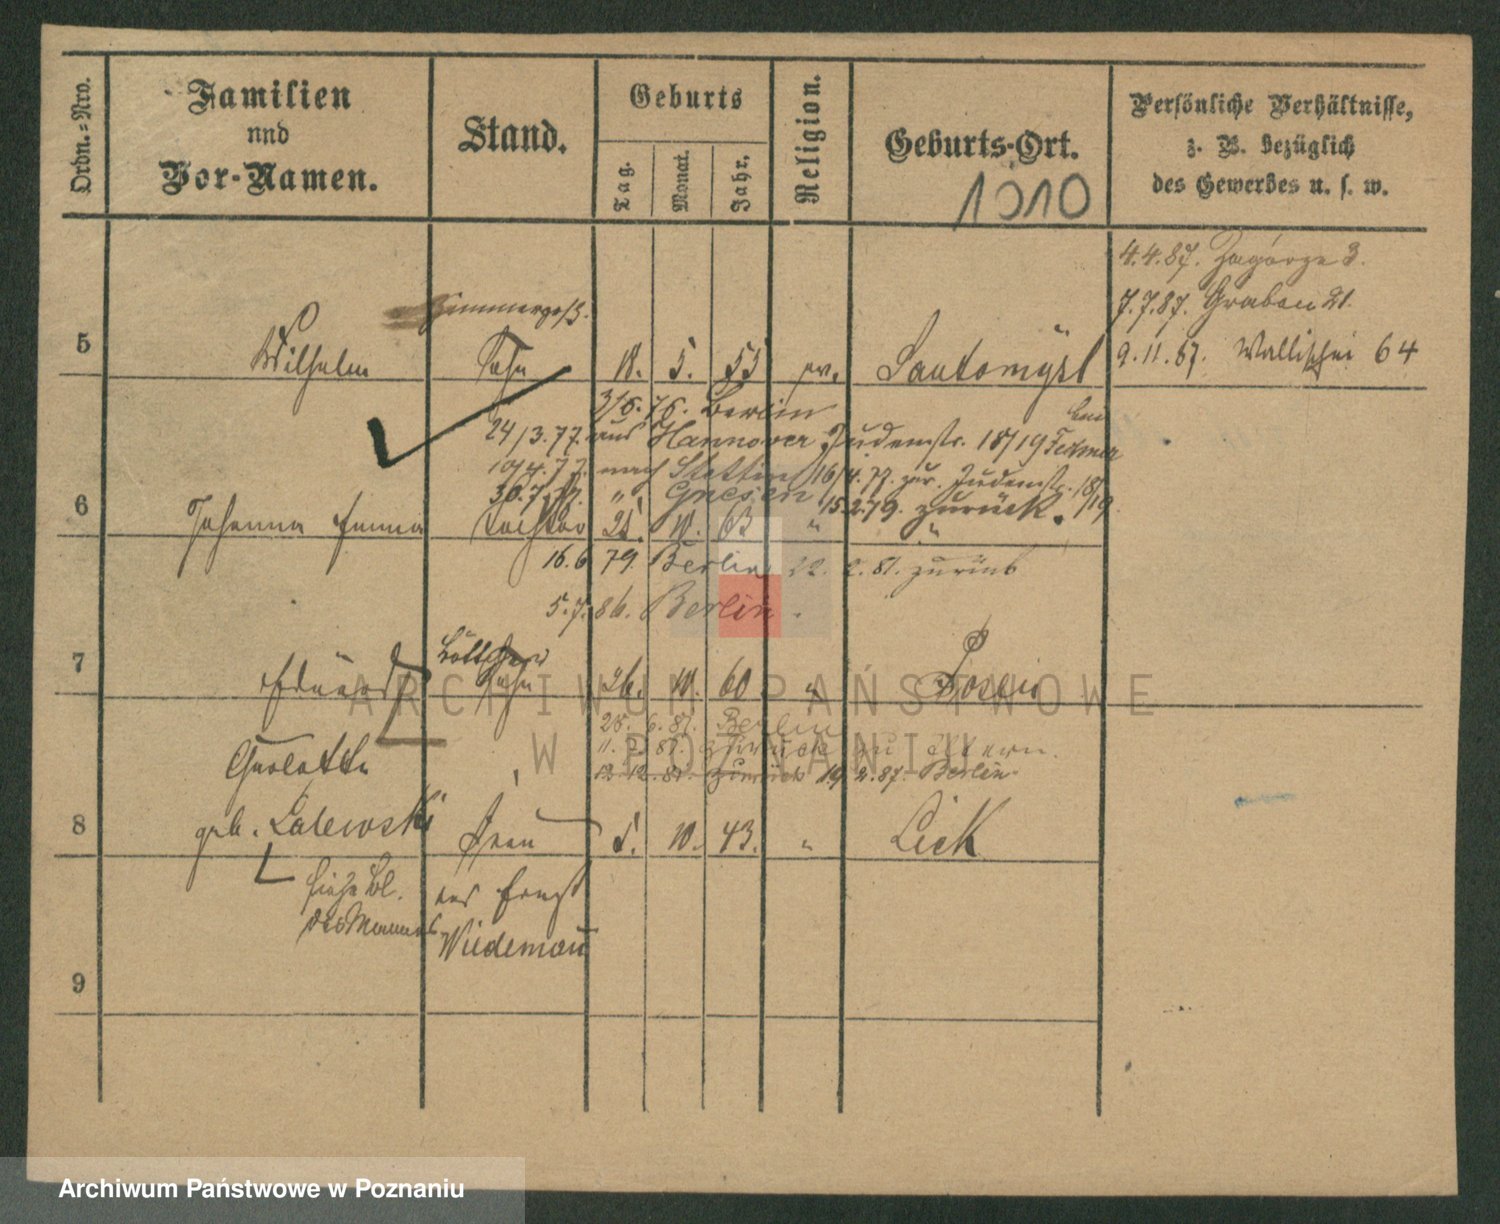 Ordn.=Nro.
Familien
und
Vor-Namen.
Stand.
Geburts
Tag.
Monat.
Jahr.
Religion.
Geburts-Ort.
1010
Persönliche Verhältnisse,
z. B. bezüglich
des Gewerbes u. s. w.
4.4.87. Zagórze 3.
7.7.87. Graben 21.
9.11.87. Wallischei 64
Zimmerges.
5 Wilhelm Sohn 18. 5. 55 ev. Santomysl
3/6.76. Berlin
24/3.77. aus Hannover Judenstr. 18/19
10/4.77. nach Stettin 16/4.77. zur. Judenstr. 18/19
30.7.77. " Gnesen 15.2.79. zurück.
6 Johanna Emma Tochter 21. 10. 63 " "
16.6 79. Berlin 22. 2. 81. zurück
5.7.86. Berlin.
Böttcher
7 Eduard Sohn 26. 10. 60 " Posen
25. 6. 87. Berlin
11. 87. zurück zu Eltern.
12 12. 87. zurück 19 2.87. Berlin.
Charlotte
8 geb. Lalewski Frau 5. 10. 43. " Lick
siehe Bl. des Ernst
des Mannes Wiedeman
9
ARCHIWUM PAŃSTWOWE
W POZNANIU
Archiwum Państwowe w Poznaniu